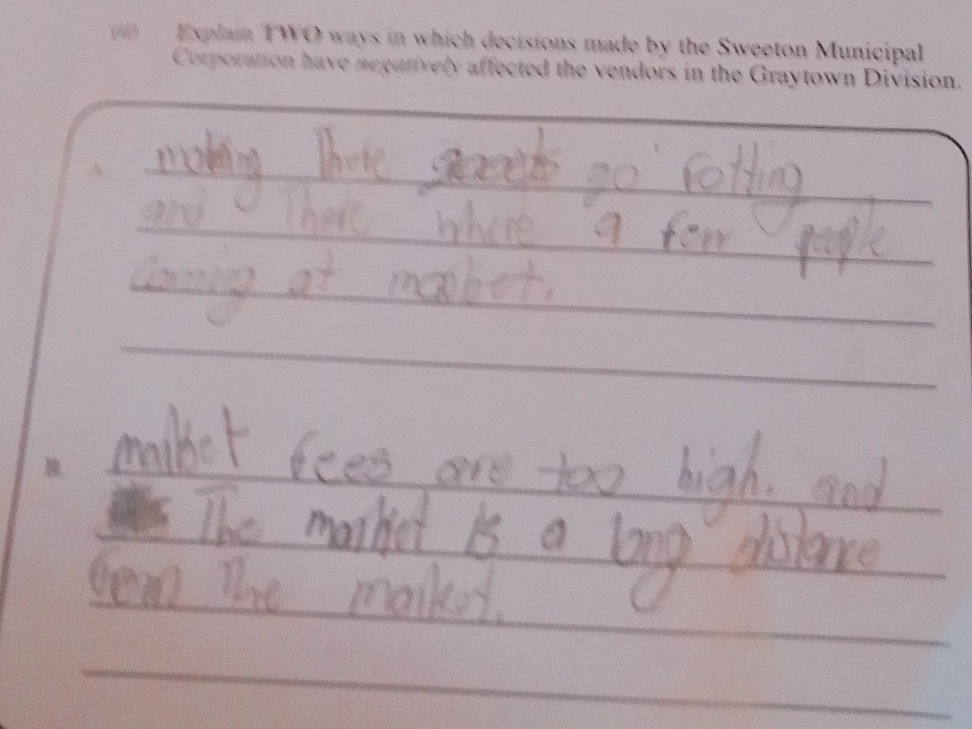 Explain TWO ways in which decisions made by the Sweeton Municipal
Corporation have negatively affected the vendors in the Graytown Division.
making there goods go rotting
and There where a few people
coming at market.
B. market fees are too high. and
The market is a long distance
from The market.